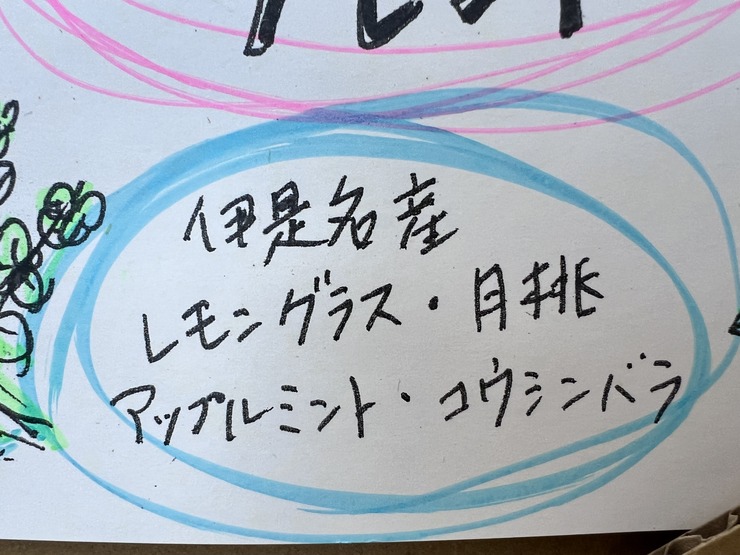 伊是名産
レモングラス・月桃
アップルミント・コウシンバラ